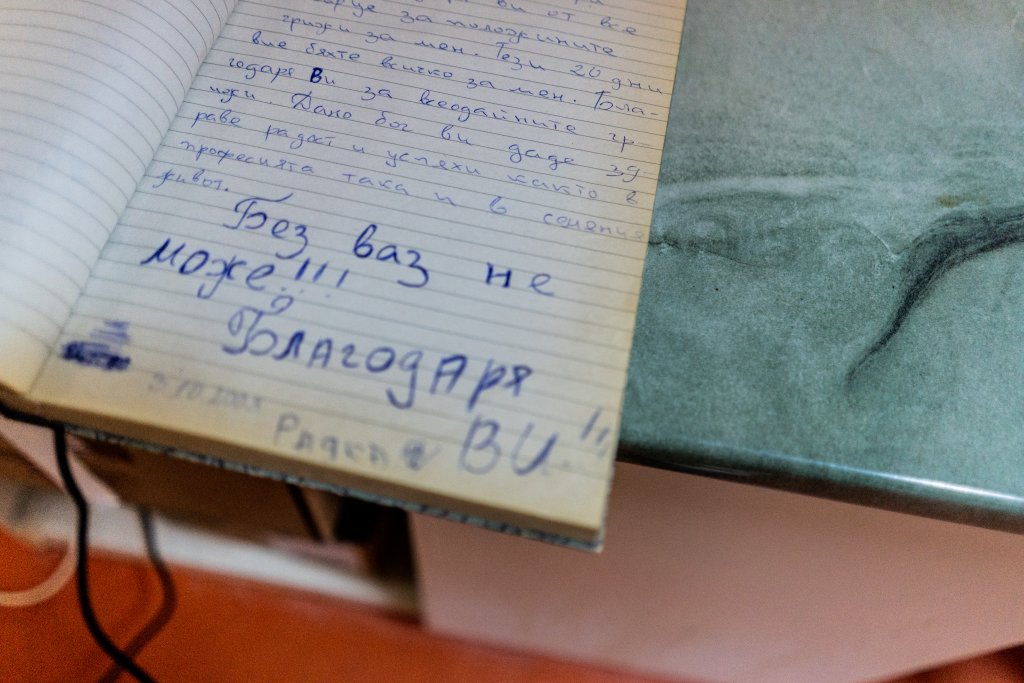 ви от все
сърце за положените
грижи за мен. Тези 20 дни
вие бяхте всичко за мен. Бла-
годаря Ви за всеодайните гр-
ижи. Дано бог ви даде зд-
раве радост и успехи както в
професията така и в семеиния
живот.
Без ваз не
може!!!
Благодаря
ВИ!!